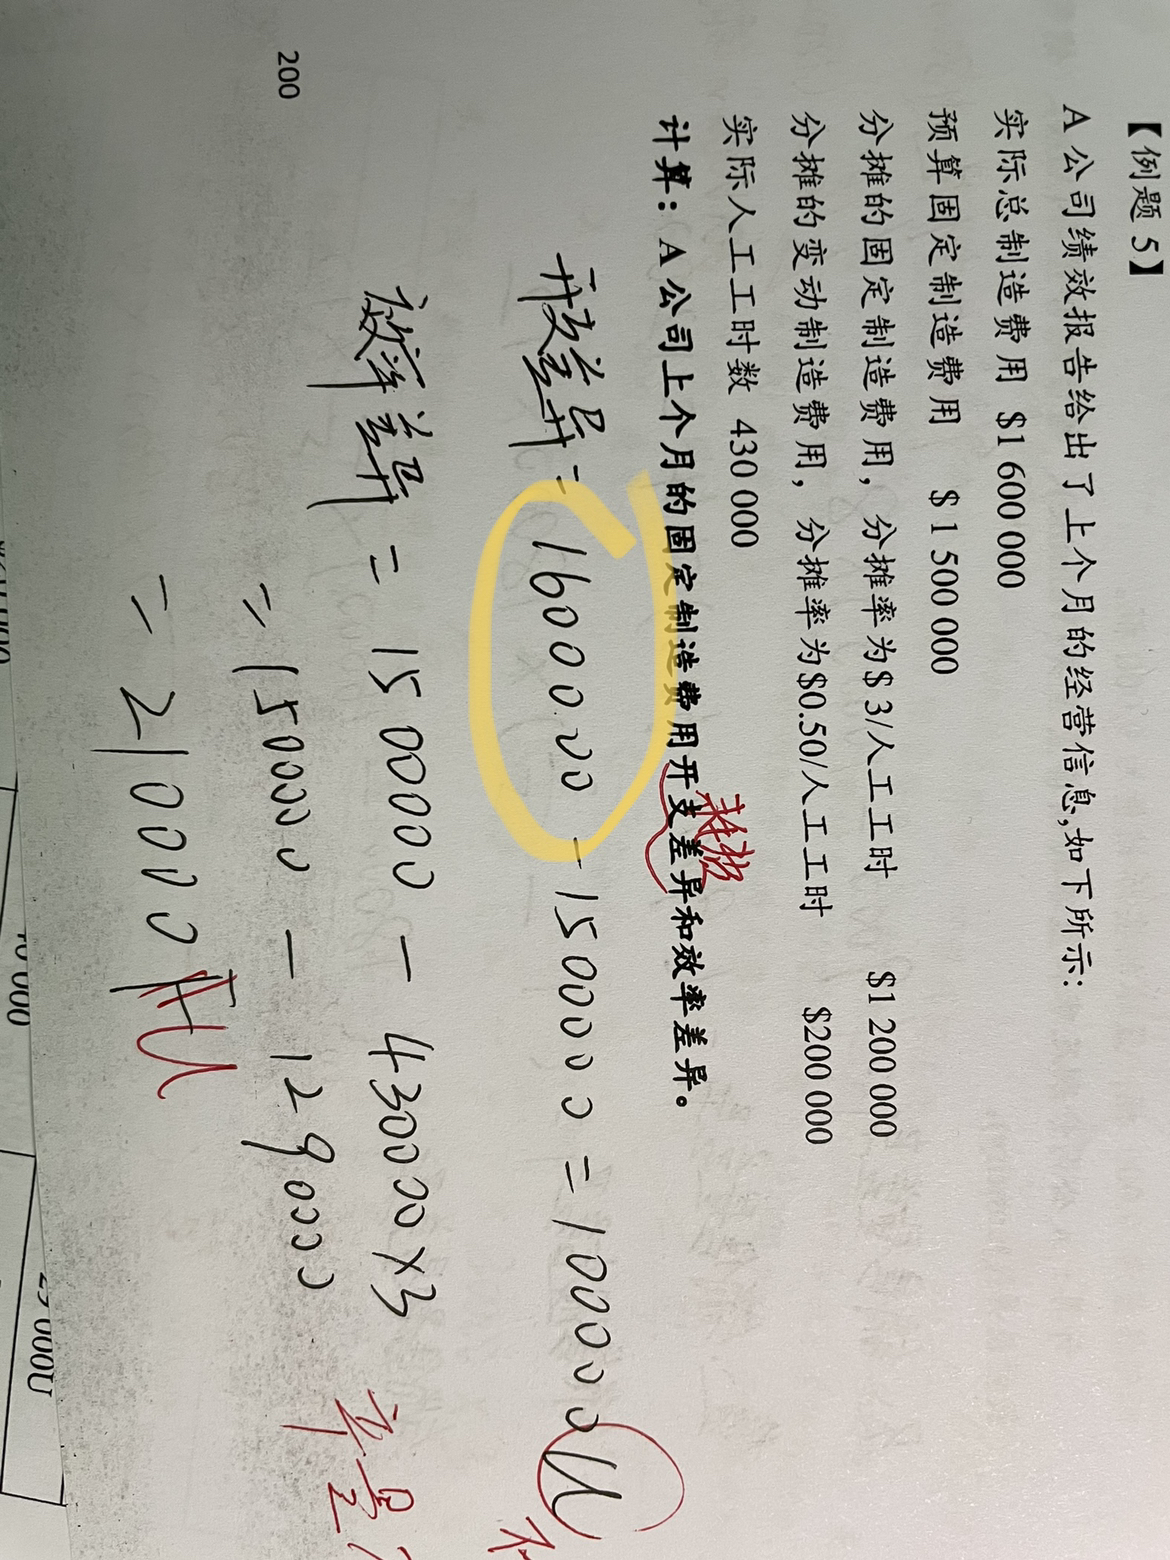 【例题 5】
A 公司绩效报告给出了上个月的经营信息,如下所示:
实际总制造费用 $1 600 000
预算固定制造费用 $ 1 500 000
分摊的固定制造费用, 分摊率为 $ 3/人工工时 $1 200 000
分摊的变动制造费用, 分摊率为$0.50/人工工时 $200 000
实际人工工时数 430 000
计算: A 公司上个月的固定制造费用开支差异和效率差异。
耗费
开支差异 = 1600000 - 1500000 = 100000 U
效率差异 = 1500000 - 430000×3
= 1500000 - 1290000
= 210000 F U
200
10 000